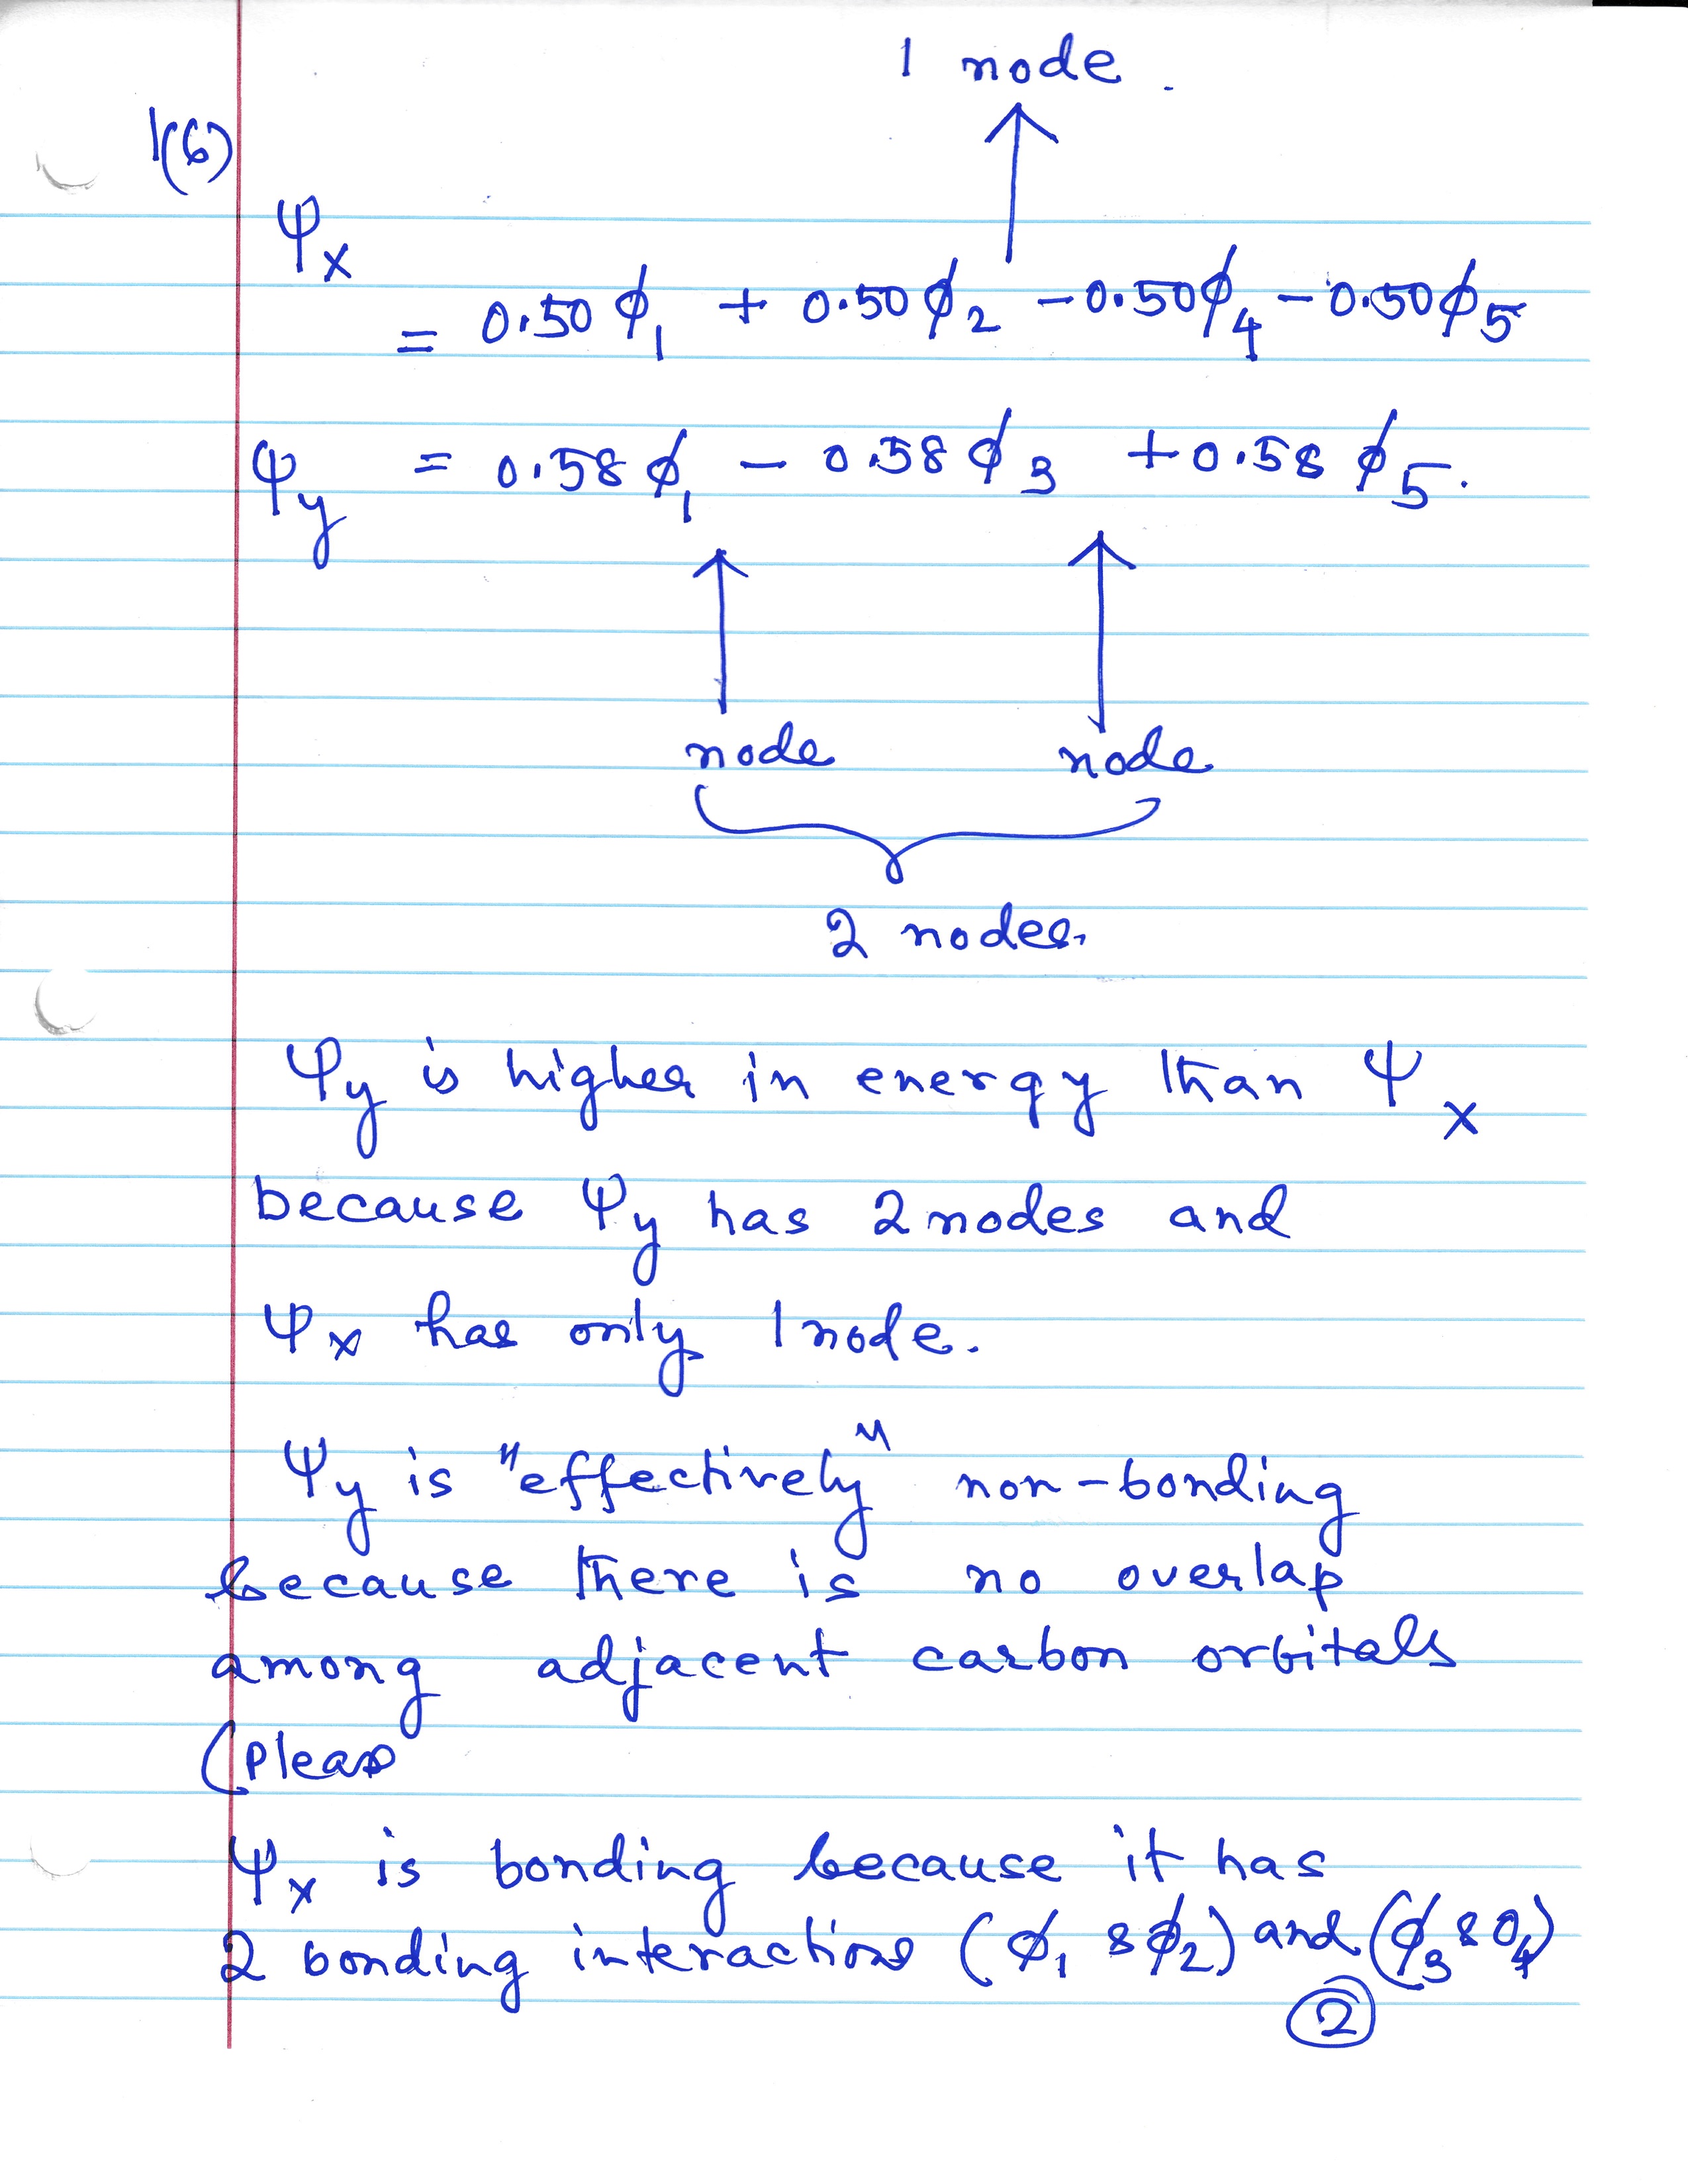 1 node.
1(b)
Ψx
= 0.50 ϕ1 + 0.50 ϕ2 - 0.50 ϕ4 - 0.50 ϕ5
Ψy = 0.58 ϕ1 - 0.58 ϕ3 + 0.58 ϕ5.
node node
2 nodes.
Ψy is higher in energy than Ψx
because Ψy has 2 nodes and
Ψx has only 1 node.
Ψy is "effectively" non-bonding
because there is no overlap
among adjacent carbon orbitals
(Pleas
Ψx is bonding because it has
2 bonding interactions (ϕ1 & ϕ2) and (ϕ3 & ϕ4)
2